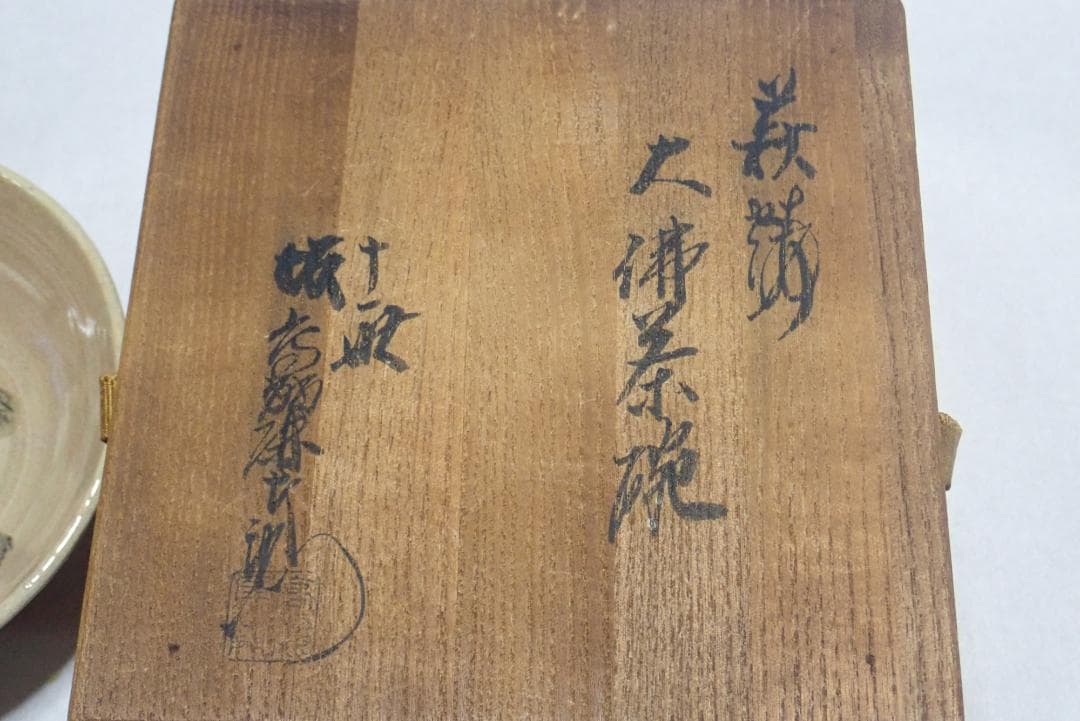 萩焼
大佛茶碗
十一世
坂高麗左衛門